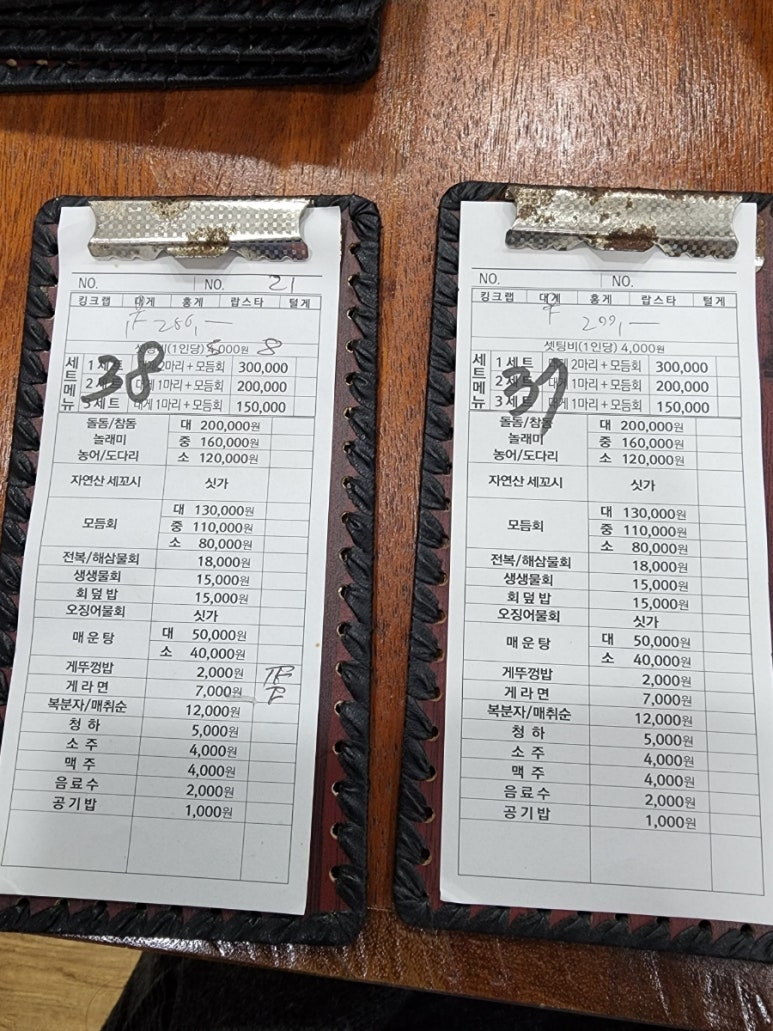 NO. NO. 21
킹크랩 대게 홍게 랍스타 털게
280,—
셋팅비(1인당) 4,000원 8
세트메뉴
38
1세트 대게 2마리+모듬회 300,000
2세트 대게 1마리+모듬회 200,000
3세트 대게 1마리+모듬회 150,000
돌돔/참돔 대 200,000원
놀래미 중 160,000원
농어/도다리 소 120,000원
자연산 세꼬시 싯가
모듬회 대 130,000원
중 110,000원
소 80,000원
전복/해삼물회 18,000원
생생물회 15,000원
회덮밥 15,000원
오징어물회 싯가
매운탕 대 50,000원
소 40,000원
게뚜껑밥 2,000원
게라면 7,000원
복분자/매취순 12,000원
청하 5,000원
소주 4,000원
맥주 4,000원
음료수 2,000원
공기밥 1,000원
NO. NO.
킹크랩 대게 홍게 랍스타 털게
셋팅비(1인당) 4,000원
세트메뉴
1세트 대게 2마리+모듬회 300,000
2세트 대게 1마리+모듬회 200,000
3세트 대게 1마리+모듬회 150,000
돌돔/참돔 대 200,000원
놀래미 중 160,000원
농어/도다리 소 120,000원
자연산 세꼬시 싯가
모듬회 대 130,000원
중 110,000원
소 80,000원
전복/해삼물회 18,000원
생생물회 15,000원
회덮밥 15,000원
오징어물회 싯가
매운탕 대 50,000원
소 40,000원
게뚜껑밥 2,000원
게라면 7,000원
복분자/매취순 12,000원
청하 5,000원
소주 4,000원
맥주 4,000원
음료수 2,000원
공기밥 1,000원